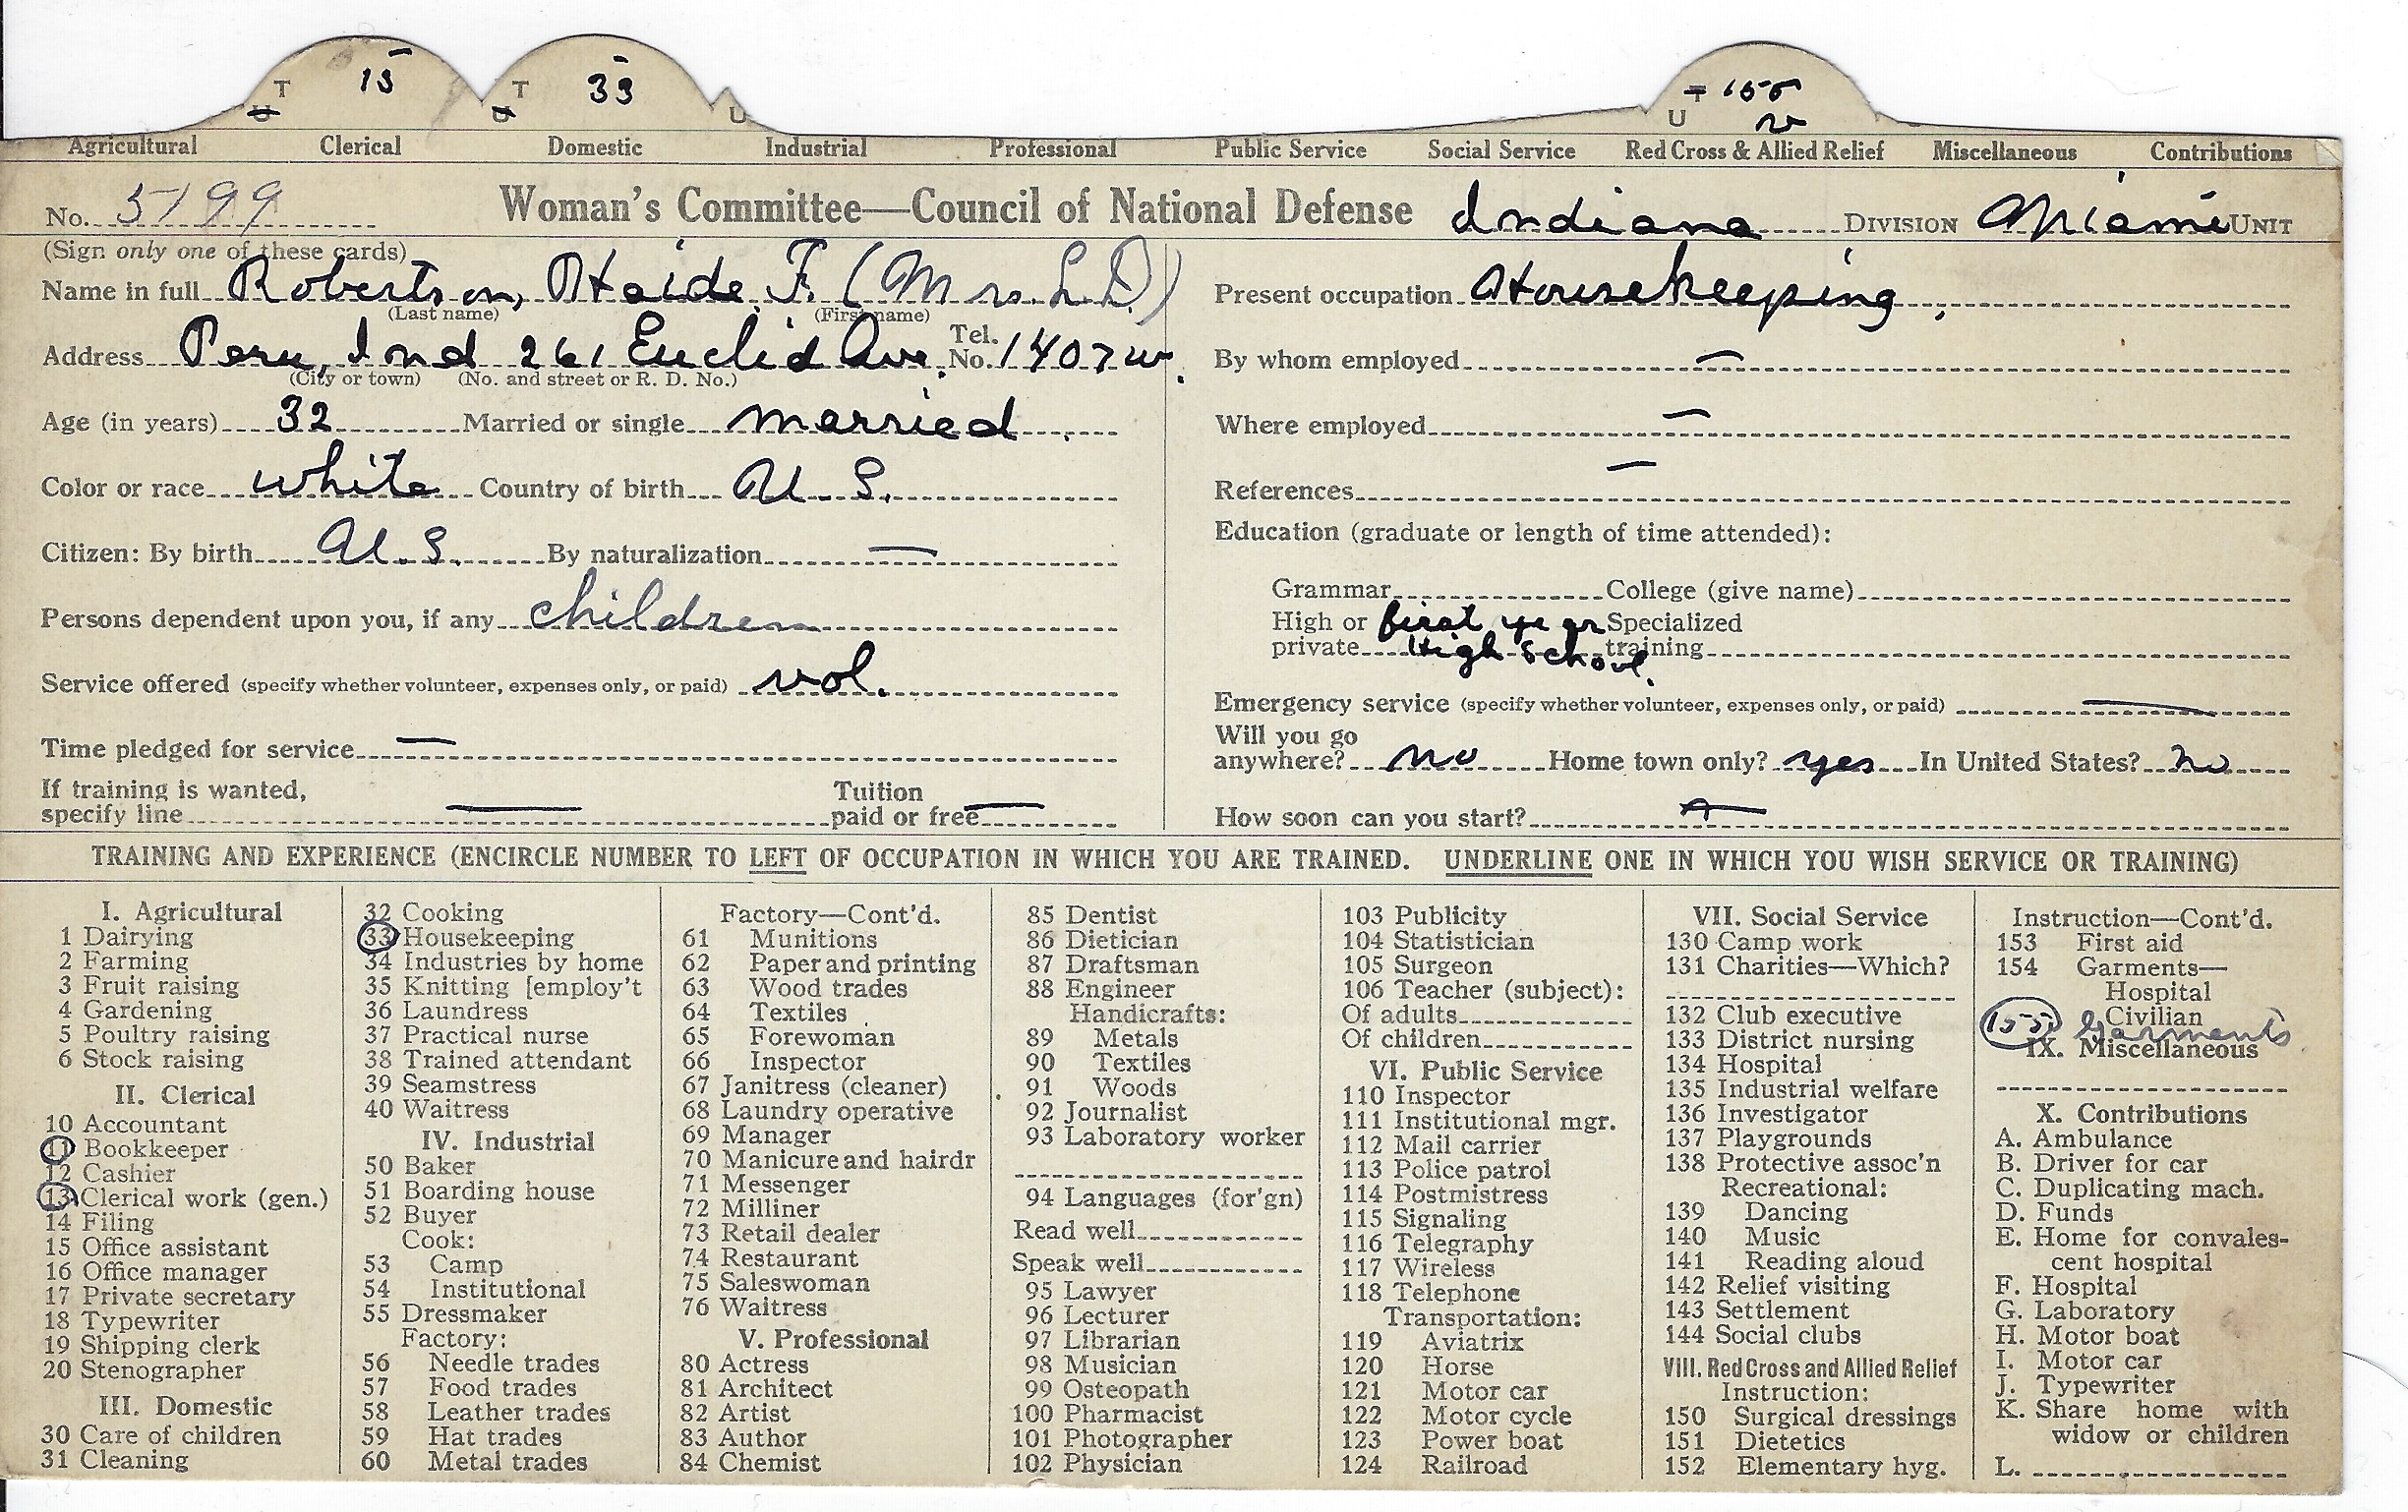 T 15 T 33 T 155
U U U U v
Agricultural Clerical Domestic Industrial Professional Public Service Social Service Red Cross & Allied Relief Miscellaneous Contributions
No. 5199 Woman's Committee—Council of National Defense Indiana DIVISION Miami UNIT
(Sign only one of these cards)
Name in full Robertson, Haide F. (Mrs. L.D.)
(Last name) (First name)
Address Peru, Ind 261 Euclid Ave. Tel. No. 1407w.
(City or town) (No. and street or R. D. No.)
Age (in years) 32 Married or single married.
Color or race white Country of birth U.S.
Citizen: By birth U.S. By naturalization —
Persons dependent upon you, if any children
Service offered (specify whether volunteer, expenses only, or paid) vol.
Time pledged for service —
If training is wanted,
specify line — Tuition paid or free —
Present occupation Housekeeping,
By whom employed —
Where employed —
References —
Education (graduate or length of time attended):
Grammar College (give name)
High or private first year High School. Specialized training
Emergency service (specify whether volunteer, expenses only, or paid) —
Will you go
anywhere? no Home town only? yes In United States? no
How soon can you start? —
TRAINING AND EXPERIENCE (ENCIRCLE NUMBER TO LEFT OF OCCUPATION IN WHICH YOU ARE TRAINED. UNDERLINE ONE IN WHICH YOU WISH SERVICE OR TRAINING)
I. Agricultural
1 Dairying
2 Farming
3 Fruit raising
4 Gardening
5 Poultry raising
6 Stock raising
II. Clerical
10 Accountant
11 Bookkeeper
12 Cashier
13 Clerical work (gen.)
14 Filing
15 Office assistant
16 Office manager
17 Private secretary
18 Typewriter
19 Shipping clerk
20 Stenographer
III. Domestic
30 Care of children
31 Cleaning
32 Cooking
33 Housekeeping
34 Industries by home
35 Knitting [employ't
36 Laundress
37 Practical nurse
38 Trained attendant
39 Seamstress
40 Waitress
IV. Industrial
50 Baker
51 Boarding house
52 Buyer
Cook:
53 Camp
54 Institutional
55 Dressmaker
Factory:
56 Needle trades
57 Food trades
58 Leather trades
59 Hat trades
60 Metal trades
Factory—Cont'd.
61 Munitions
62 Paper and printing
63 Wood trades
64 Textiles
65 Forewoman
66 Inspector
67 Janitress (cleaner)
68 Laundry operative
69 Manager
70 Manicure and hairdr
71 Messenger
72 Milliner
73 Retail dealer
74 Restaurant
75 Saleswoman
76 Waitress
V. Professional
80 Actress
81 Architect
82 Artist
83 Author
84 Chemist
85 Dentist
86 Dietician
87 Draftsman
88 Engineer
Handicrafts:
89 Metals
90 Textiles
91 Woods
92 Journalist
93 Laboratory worker
94 Languages (for'gn)
Read well
Speak well
95 Lawyer
96 Lecturer
97 Librarian
98 Musician
99 Osteopath
100 Pharmacist
101 Photographer
102 Physician
103 Publicity
104 Statistician
105 Surgeon
106 Teacher (subject):
Of adults
Of children
VI. Public Service
110 Inspector
111 Institutional mgr.
112 Mail carrier
113 Police patrol
114 Postmistress
115 Signaling
116 Telegraphy
117 Wireless
118 Telephone
Transportation:
119 Aviatrix
120 Horse
121 Motor car
122 Motor cycle
123 Power boat
124 Railroad
VII. Social Service
130 Camp work
131 Charities—Which?
132 Club executive
133 District nursing
134 Hospital
135 Industrial welfare
136 Investigator
137 Playgrounds
138 Protective assoc'n
Recreational:
139 Dancing
140 Music
141 Reading aloud
142 Relief visiting
143 Settlement
144 Social clubs
VIII. Red Cross and Allied Relief
Instruction:
150 Surgical dressings
151 Dietetics
152 Elementary hyg.
Instruction—Cont'd.
153 First aid
154 Garments—
Hospital
Civilian
155 Garments
IX. Miscellaneous
X. Contributions
A. Ambulance
B. Driver for car
C. Duplicating mach.
D. Funds
E. Home for convales-
cent hospital
F. Hospital
G. Laboratory
H. Motor boat
I. Motor car
J. Typewriter
K. Share home with
widow or children
L.